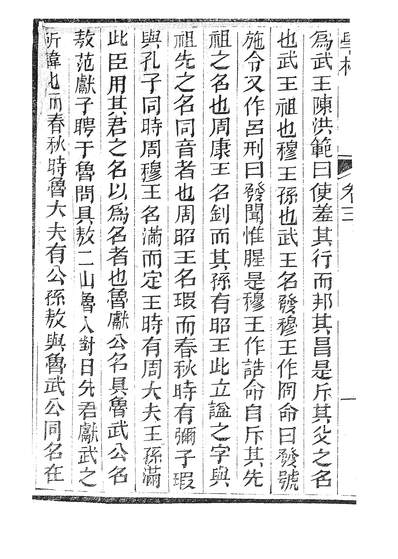 學林 卷三 一
爲武王陳洪範曰使羞其行而邦其昌是斥其父之名
也武王祖也穆王孫也武王名發穆王作冏命曰發號
施令又作呂刑曰發聞惟腥是穆王作誥命自斥其先
祖之名也周康王名釗而其孫有昭王此立謚之字與
祖先之名同音者也周昭王名瑕而春秋時有彌子瑕
與孔子同時周穆王名滿而定王時有周大夫王孫滿
此臣用其君之名以爲名者也魯獻公名具魯武公名
敖范獻子聘于魯問具敖二山魯人對曰先君獻武之
所諱也而春秋時魯大夫有公孫敖與魯武公同名在